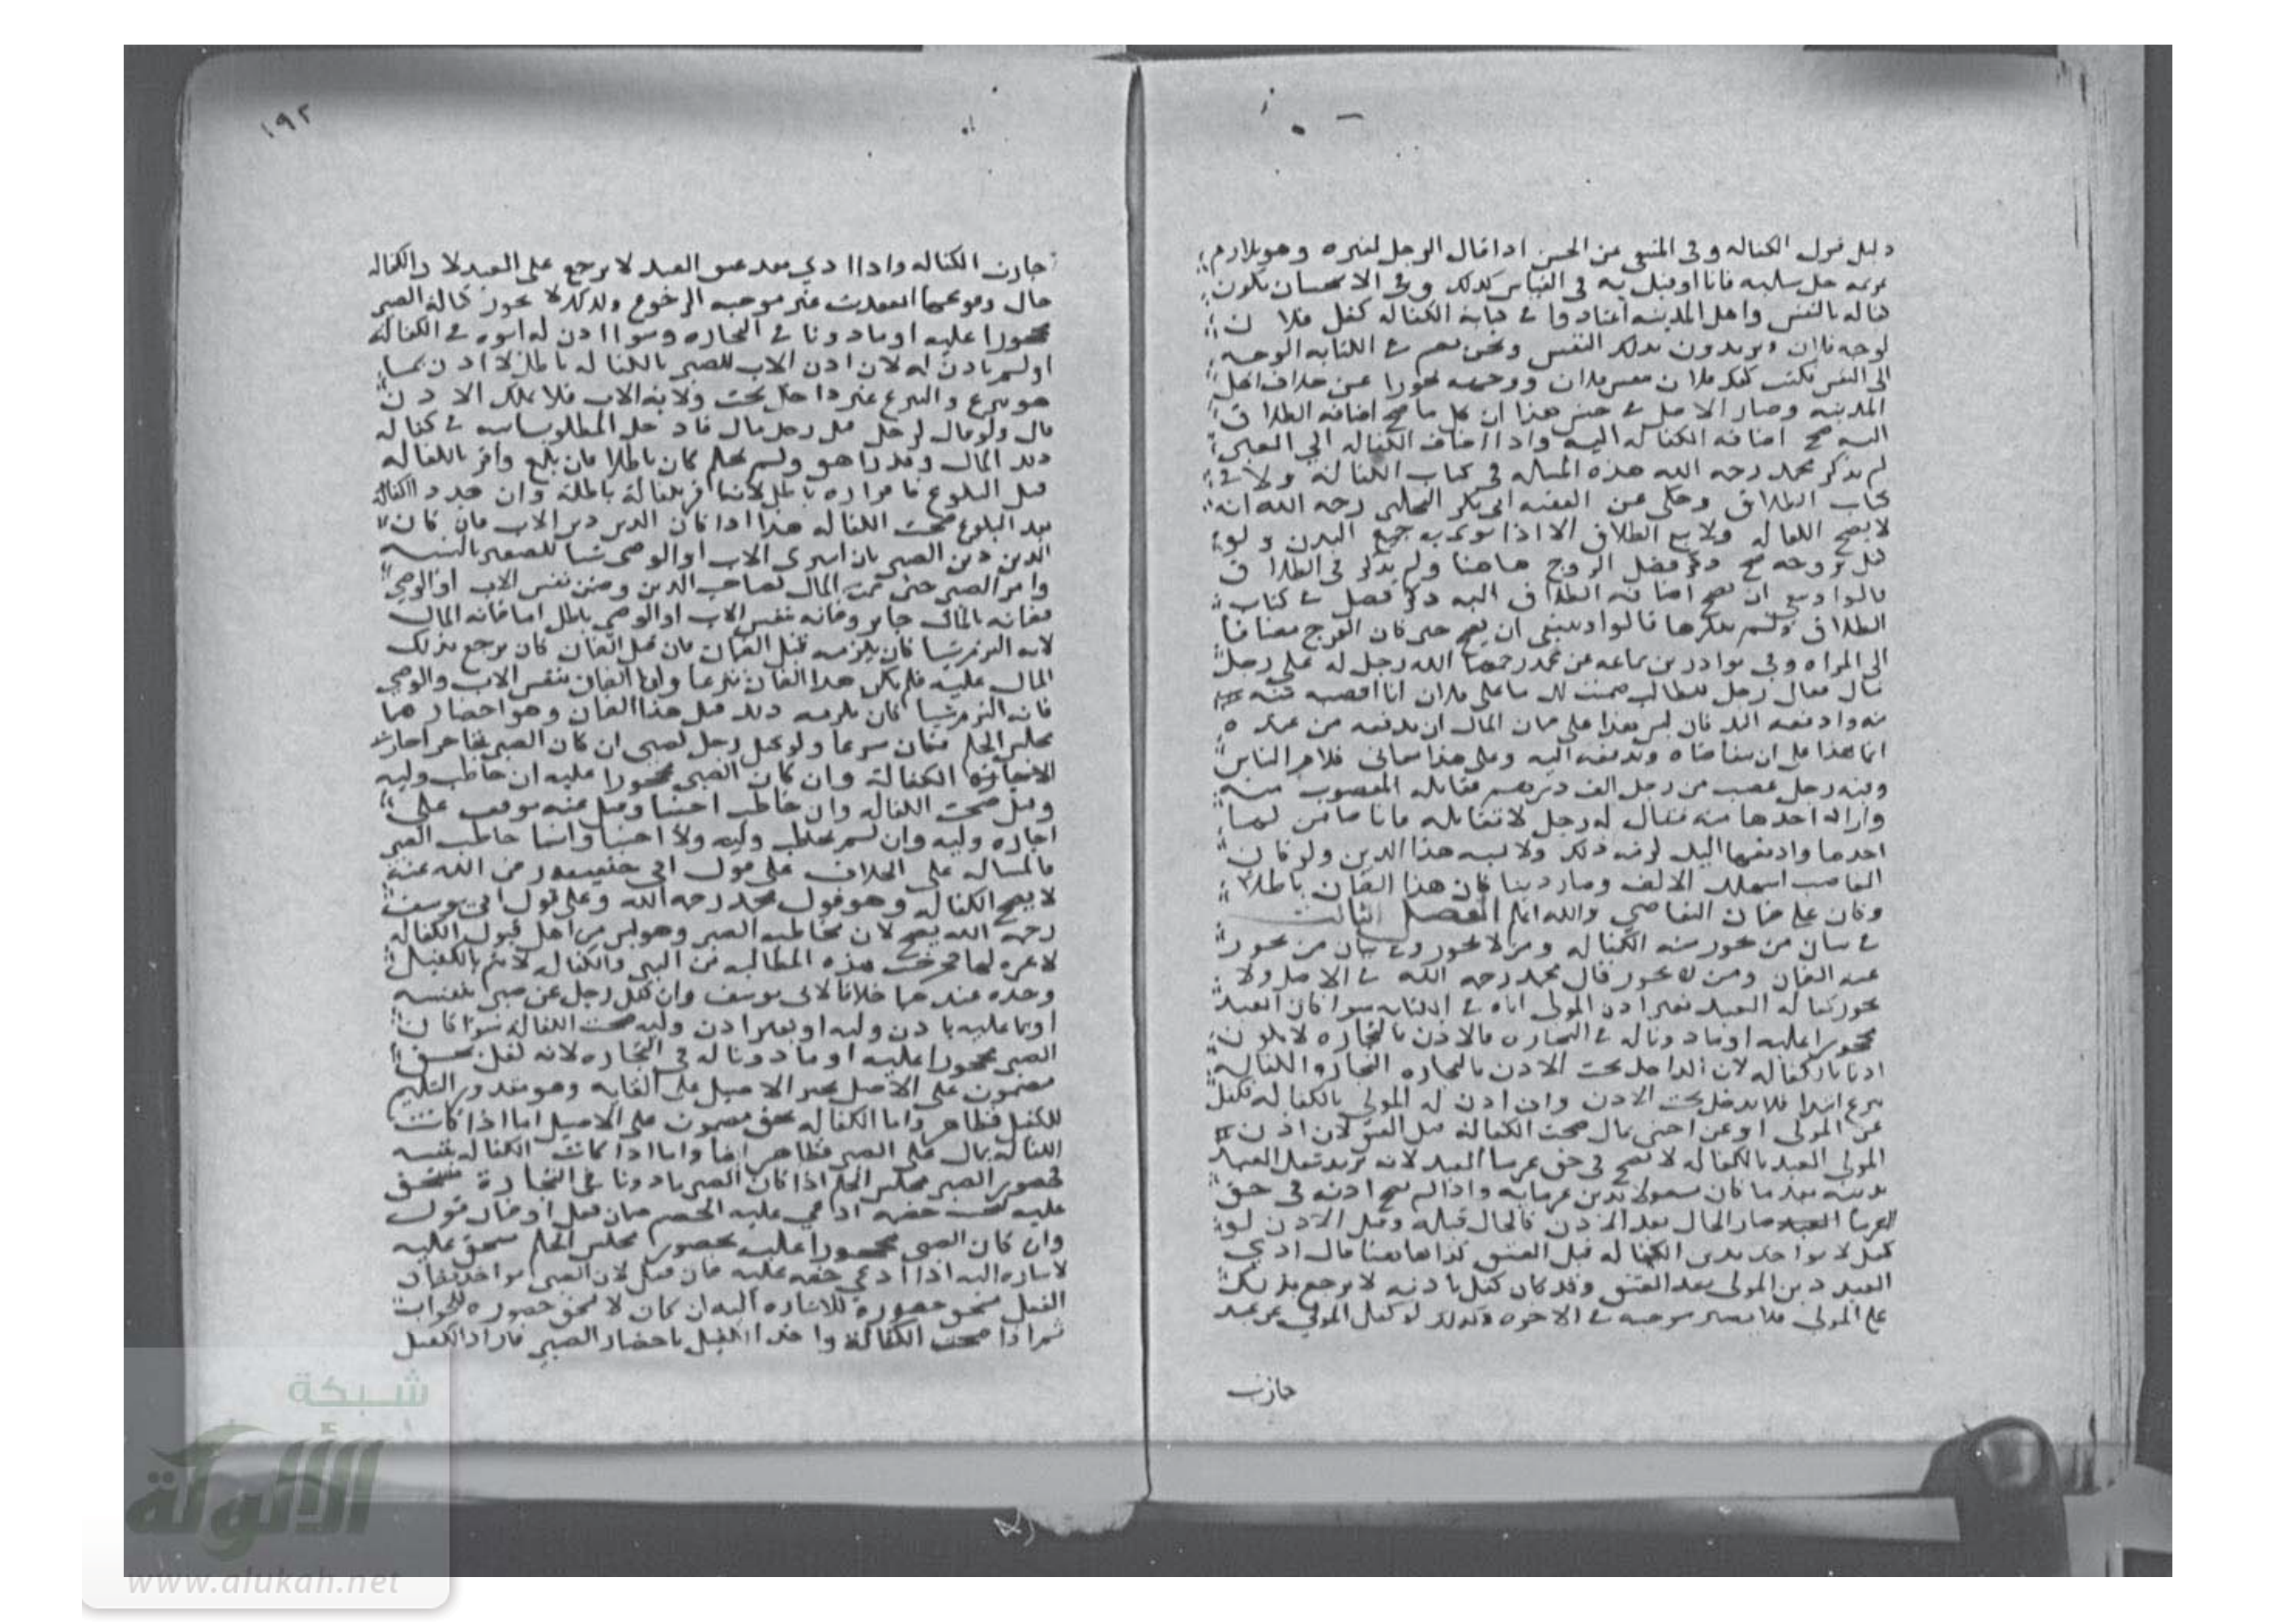 دليل قول الكفاله وفى المنتقى عن الحسن اذا قال الرجل لغيره وهو يلازم
غريمه خل سبيله فانا اوفيك به فى القياس كذلك وفى الاستحسان يكون
كفاله بالنفس واهل المدينه اعتادوا فى كتابة الكفاله كفل فلان
لوجه فلان ويريدون بذلك النفس ونحن نضم فى الكتابه الوجه
الى النفس نكتب كفل فلان بنفس فلان ووجهه تحرزا عن خلاف اهل
المدينه وصار الاصل فى جنس هذا ان كل ما صح اضافة الطلاق
اليه صح اضافة الكفاله اليه واذا اضاف الكفاله الي
لم يذكر محمد رحمه الله هذه المساله فى كتاب الكفالة ولا فى
كتاب الطلاق وحكى عن الفقيه ابى بكر البلخى رحمه الله انه
لا يصح الكفاله ولا يقع الطلاق الا اذا نوى به جميع البدن ولو
هاهنا ولم يذكر فى الطلاق
قالوا وينبغى ان تصح اضافة الطلاق اليه فصل فى كتاب
الطلاق ولم يذكرها قالوا وينبغى ان يصح
الى المراه وفى نوادر بن سماعه عن محمد رحمهما الله رجل له على رجل
مال فقال رجل للطالب ضمنت لك ما على فلان انا اقبضه منه
منه وادفعه اليك قال ليس هذا على ضمان المال ان يدفعه من عنده
انما هذا على ان يتقاضاه ويدفعه اليه وعلى هذا معانى كلام الناس
وفيه رجل غصب من رجل الف درهم فقاتله المغصوب منه
واراد اخذها منه فقال له رجل لا تقاتله فانا ضامن لها
اخذها وادفعها اليك لزمه ذلك ولا يشبه هذا الدين ولو كان
الغاصب استهلك الالف وصار دينا كان هذا الضمان باطلا
وكان على ضمان التقاضي والله اعلم الفصل الثالث
فى بيان من يجوز منه الكفاله ومن لا يجوز وفى بيان من يجوز
عنه الضمان ومن لا يجوز قال محمد رحمه الله فى الاصل ولا
يجوز كفالة العبد بغير اذن المولى اياه فى الكفاله سوا كان العبد
محجورا عليه او ماذونا له فى التجاره فالاذن بالتجاره لا يكون
اذنا بالكفاله لان الداخل تحت الاذن بالتجاره التجاره والكفاله
تبرع ابتدا فلا يدخل تحت الاذن وان اذن له المولي بالكفاله فكفل
عن المولى او عن اجنبى بمال صحت الكفالة قبل العتق لان اذن
المولى العبد بالكفاله لا تصح فى حق غرما العبد لانه يريد شغل العبد
بدينه بعد ما كان مشغولا بدين غرمايه واذا لم يصح اذنه فى حق
الغرما صار الحال بعد الاذن كالحال قبله وقبل الاذن لو
كفل لا يواخذ بدين الكفاله قبل العتق كذا هاهنا فان ادي
العبد دين المولى بعد العتق وقد كان كفل باذنه لا يرجع بذلك
على المولى فلا يصير موجبه فى الاخره وكذلك لو كفل المولى عن عبد
جازت
١٩٢
جازت الكفاله واذا ادي بعد عتق العبد لا يرجع على العبد لان الكفاله
حال وقوعها انعقدت غير موجبه الرجوع وكذلك لا يجوز كفالة الصبى
محجورا عليه او ماذونا فى التجاره وسوا اذن له ابوه فى الكفالة
او لم ياذن له لان اذن الاب للصبى بالكفاله باطل لان
هو تبرع والتبرع غير داخل تحت ولاية الاب فلا يملك الاذن
قال ولو قال لرجل على رجل مال فادخل المطلوب ابنه فى كفاله
ذلك المال وقد راهق ولم يحتلم كان باطلا فان بلغ واقر بالكفاله
قبل البلوغ فاقراره باطل لانه اقر بكفالة باطلة وان جدد الكفالة
بعد البلوغ صحت الكفاله هذا اذا كان الدين دين الاب فان كان
الدين دين الصبى بان اشترى الاب او الوصى شيا للصغير بالنسيه
وامر الصبى حتى ضمن المال لصاحب الدين وضمن نفس الاب او الوصي
فضمانه بالمال جايز وضمانه بنفس الاب او الوصى باطل اما ضمانه المال
لانه التزم شيا كان يلزمه قبل الضمان فان قبل الضمان كان يرجع بذلك
المال عليه فلم يكن هذا الضمان تبرعا واما الضمان بنفس الاب والوصي
فانه التزم شيا كان يلزمه ذلك قبل هذا الضمان وهو احضارهما
مجلس الحكم فكان تبرعا ولو كفل رجل لصبى ان كان الصبى تاجرا جازت
الكفالة وان كان الصبى محجورا عليه ان خاطب وليه
وقبل صحت الكفاله وان خاطب اجنبيا وقبل عنه توقف على
اجازه وليه وان لم يخاطب وليه ولا اجنبيا وانما خاطب الصبى
فالمساله على الخلاف على قول ابى حنيفه رضى الله عنه
لا يصح الكفاله وهو قول محمد رحمه الله وعلى قول ابى يوسف
رحمه الله يصح لان مخاطبه الصبى وهو ليس من اهل قبول الكفاله
لا عبره لها فخرجت هذه المخاطبه من البين والكفاله لا تتم بالكفيل
وحده عندهما خلافا لابى يوسف وان كفل رجل عن صبى بنفسه
او بما عليه باذن وليه او بغير اذن وليه صحت الكفاله سوا كان
الصبى محجورا عليه او ماذونا له فى التجاره لانه كفل بحق
مضمون على الاصيل يجبر الاصيل على ايفايه وهو مقدور التسليم
للكفيل فظاهر واما الكفاله بحق مضمون على الاصيل اما اذا كانت
الكفاله بمال على الصبى فظاهر ايضا واما اذا كانت الكفاله بنفسه
فحضور الصبى مجلس الحكم اذا كان الصبى ماذونا فى التجارة مستحق
عليه
وان كان الصبى محجورا عليه بحضور مجلس الحكم مستحق عليه
لاشاره اليه اذا ادعي حقه عليه فان قيل لان الصبى مواخذ بضمان
الفعل مستحق حضوره للاشاره اليه ان كان لا يستحق حضوره للجواب
ثم اذا صحت الكفالة واخذ الكفيل باحضار الصبى فاراد الكفيل
شبكة
الألوكة
www.alukah.net